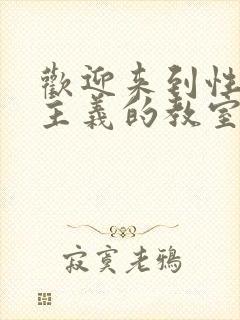 歡迎来到性
主義的教室
寂寞老鴉